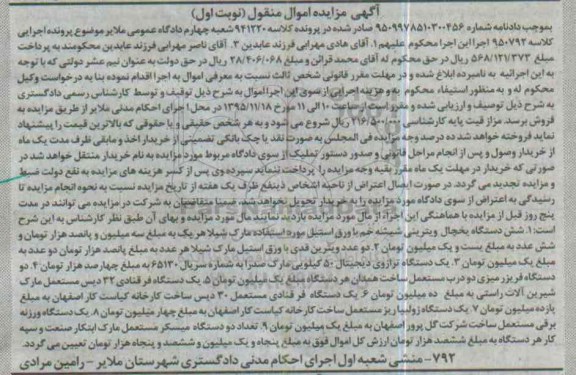 آگهی مزایده اموال منقول (نوبت اول)
بموجب دادنامه شماره ۹۵۰۹۹۷۸۵۱۰۳۰۰۴۵۶ صادر شده در پرونده کلاسه ۹۴۱۲۲۰ شعبه چهارم دادگاه عمومی ملایر موضوع پرونده اجرایی
کلاسه ۹۵۰۷۹۲ اجرا این اجرا محکوم علیهم ۱. آقای هادی مهرابی فرزند عابدین ۳. آقای ناصر مهرابی فرزند عابدین محکومند به پرداخت
مبلغ ۵۶۸/۱۲۱/۳۷۳ ریال در حق محکوم له آقای محمد قرائن و مبلغ ۲۸/۴۰۶/۰۶۸ ریال در حق دولت به عنوان نیم عشر دولتی که با توجه
به این اجرائیه به نامبرده ابلاغ شده و در مهلت مقرر قانونی شخص ثالث نسبت به معرفی اموال به اجرا اقدام نموده بنا به درخواست وکیل
محکوم له و به منظور استیفاء محکوم به و هزینه اجرایی از سوی این اجرا اموال به شرح ذیل توقیف و توسط کارشناس رسمی دادگستری
به شرح ذیل توصیف و ارزیابی شده و مقرر است از ساعت ۱۰ الی ۱۱ مورخ ۱۳۹۵/۱۱/۱۸ در محل اجرای احکام مدنی ملایر از طریق مزایده به
فروش برسد. مزایده از قیمت پایه کارشناسی ۲۱۶/۵۰۰/۰۰۰ ریال شروع می شود و به هر شخص حقیقی و یا حقوقی که بالاترین قیمت را پیشنهاد
نماید فروخته خواهد شد ده درصد وجه مزایده فی المجلس به صورت نقد یا چک بانکی تضمینی از خریدار اخذ و مابقی ظرف مدت یک ماه
از خریدار وصول و پس از انجام مراحل قانونی و صدور دستور تملیک از سوی دادگاه مربوط مورد مزایده به نام خریدار منتقل خواهد شد در
صورتی که خریدار در مهلت یک ماه مقرر بقیه وجه مزایده را پرداخت ننماید سپرده وی پس از کسر هزینه های مزایده به نفع دولت ضبط
و مزایده تجدید می گردد. در صورت ایصال اعتراض از ناحیه اشخاص ذینفع ظرف یک هفته از تاریخ مزایده نسبت به نحوه انجام مزایده تا
رسیدگی به اعتراض از سوی دادگاه مورد مزایده را به خریدار تحویل نخواهد شد. ضمنا متقاضیان به شرکت در مزایده می توانند در مدت
پنج روز قبل از مزایده با هماهنگی این اجرا، از مال مورد مزایده بازدید نمایند مال مورد مزایده و بهای آن طبق نظر کارشناس به این شرح
است: ۱. شش دستگاه یخچال ویترینی شیشه خم با ورق استیل مورد استفاده مارک شیلا هر یک به مبلغ سه میلیون و پانصد هزار تومان و
شش عدد به مبلغ بیست و یک میلیون تومان ۲. دو عدد ویترین قدی با ورق استیل مارک شیلا هر عدد به مبلغ پانصد هزار تومان دو عدد به
مبلغ یک میلیون تومان ۳. یک دستگاه ترازوی دیجیتال ۵۰ کیلویی مارک صدرا به شماره سریال ۶۵۱۳۰ به مبلغ چهارصد هزار تومان ۴. دو
دستگاه فریزر میزی دو درب مستعمل ساخت همدان هر دستگاه مبلغ یک میلیون تومان ۵. یک دستگاه فر قنادی ۳۲ دیس مستعمل مارک
شیرین آلات راستی به مبلغ ده میلیون تومان ۶. یک دستگاه فر قنادی مستعمل ۳۰ دیس ساخت کارخانه کیاست کار اصفهان به مبلغ
یازده میلیون تومان ۷. یک دستگاه زولبیا ریز مستعمل ساخت کارخانه کیاست کار اصفهان به مبلغ چهار میلیون تومان ۸. یک دستگاه ورزنه
برقی مستعمل ساخت شرکت گل پرور اصفهان به مبلغ یک میلیون تومان ۹. تعداد دو دستگاه میسکر مستعمل مارک ابتکار صنعت و سپه
کار هر دستگاه به مبلغ ششصد هزار تومان ارزش کل اموال فوق به مبلغ پنجاه و یک میلیون و ششصد و پنجاه هزار تومان تعیین می گردد.
۷۹۲- منشی شعبه اول اجرای احکام مدنی دادگستری شهرستان ملایر – رامین مرادی